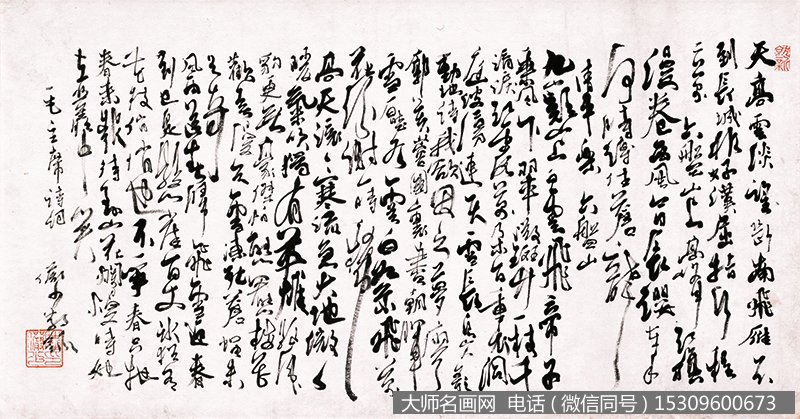 天高雲淡望斷南飛雁不
到長城非好漢屈指行程
二萬 六盤山上高峰紅旗
漫卷西風今日長纓在手
何時縛住蒼龍
清平樂 六盤山
九嶷山上白雲飛帝子
乘風下翠微斑竹一枝千
滴淚紅霞萬朵百重衣洞
庭波湧連天雪長島人歌
動地詩我欲因之夢寥
廓芙蓉國裏盡朝暉
雪壓冬雲白絮飛萬
花紛謝一時稀
高天滾滾寒流急大地微微
暖氣吹獨有英雄驅虎
豹更無豪傑怕熊羆梅花
歡喜漫天雪凍死蒼蠅未
足奇
風雨送春歸飛雪迎春
到已是懸崖百丈冰猶有
花枝俏俏也不爭春只把
春來報待到山花爛漫時她
在叢中笑
毛主席詩詞
大师名画网 电话（微信同号）15309600673